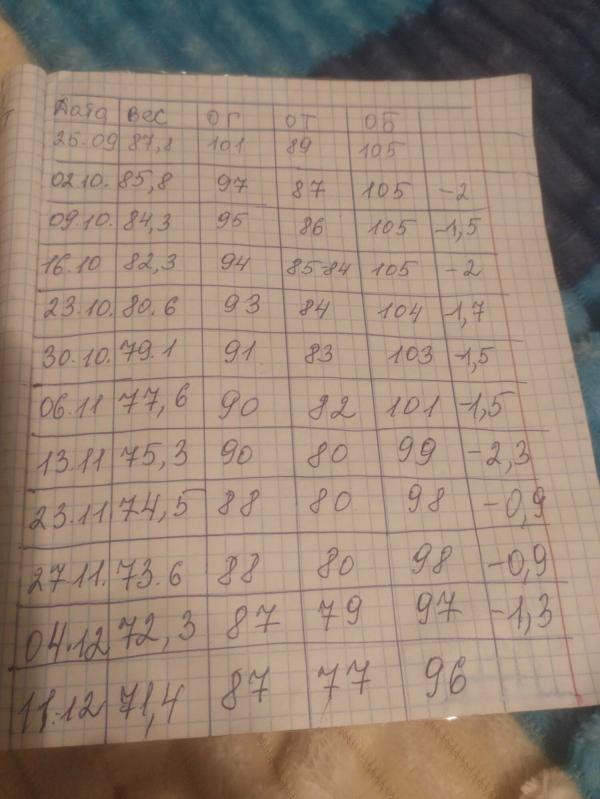 Дата вес ОГ ОТ ОБ
25.09 87,8 101 89 105
02.10. 85,8 97 87 105 -2
09.10. 84,3 95 86 105 -1,5
16.10 82,3 94 85-84 105 -2
23.10. 80.6 93 84 104 -1,7
30.10. 79.1 91 83 103 -1,5
06.11 77,6 90 82 101 -1,5
13.11 75,3 90 80 99 -2,3
23.11 74,5 88 80 98 -0,9
27.11. 73.6 88 80 98 -0,9
04.12 72,3 87 79 97 -1,3
11.12 71,4 87 77 96